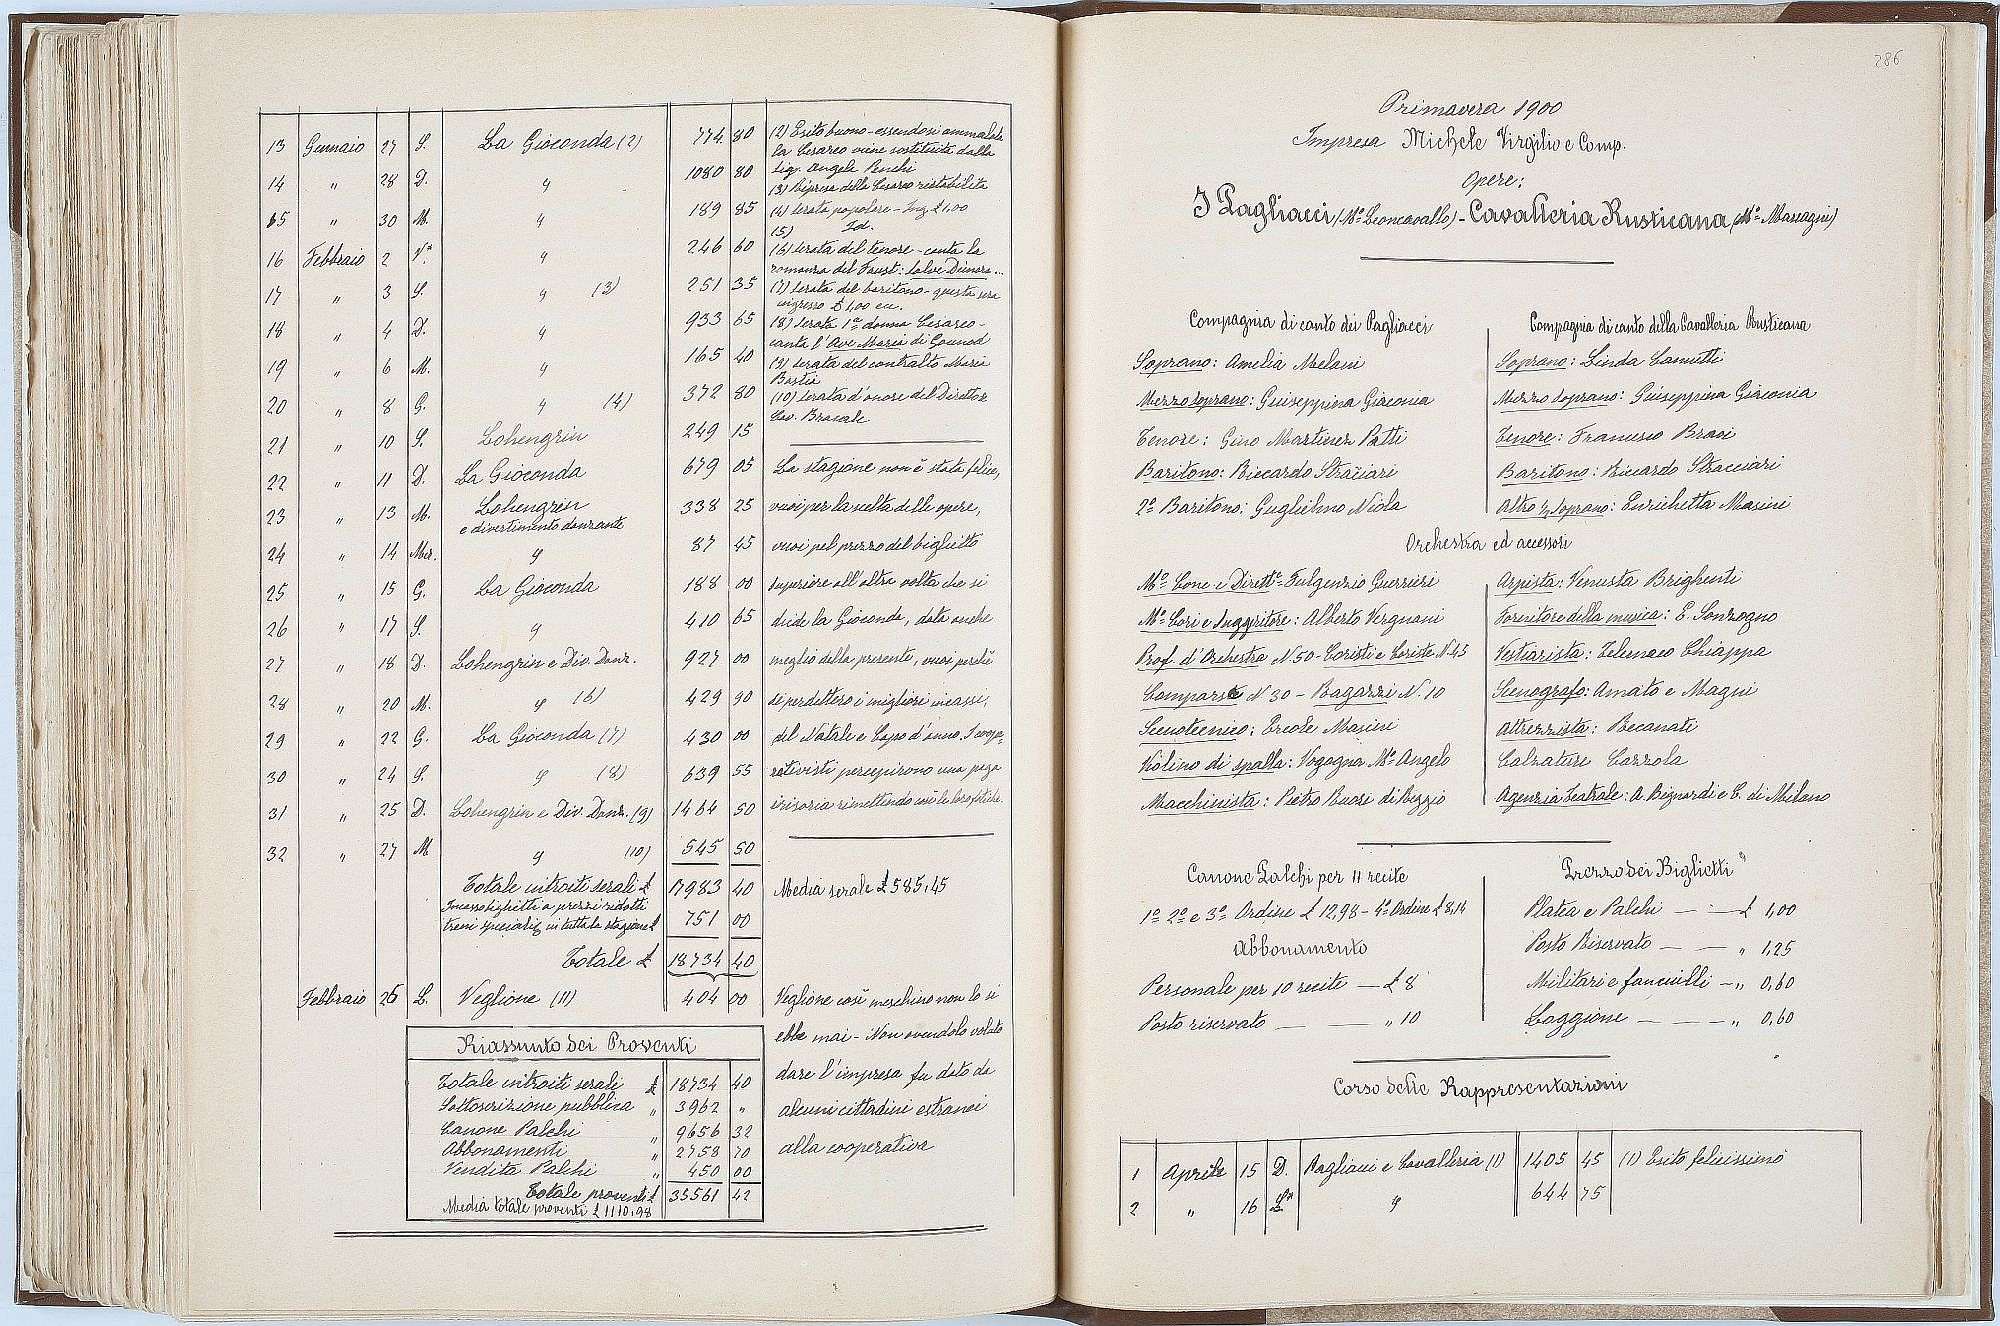 13 Gennaio 27 S. La Gioconda (2) 774 80
14 " 28 D. " 1080 80
15 " 30 M. " 189 85
16 Febbraio 2 V. " 246 60
17 " 3 S. " (3) 251 35
18 " 4 D. " 933 65
19 " 6 M. " 165 40
20 " 8 G. " (4) 372 80
21 " 10 S. Lohengrin 249 15
22 " 11 D. La Gioconda 679 05
23 " 13 M. Lohengrin e divertimento danzante 338 25
24 " 14 Mer. " 87 45
25 " 15 G. La Gioconda 188 00
26 " 17 S. " 410 65
27 " 18 D. Lohengrin e Div. Danz. 927 00
28 " 20 M. " (6) 429 90
29 " 22 G. La Gioconda (7) 430 00
30 " 24 S. " (8) 639 55
31 " 25 D. Lohengrin e Div. Danz. (9) 1464 50
32 " 27 M " (10) 545 50
Totale introiti serali £ 17983 40
Incasso biglietti a prezzi ridotti
treni speciali in tutta la stagione £ 751 00
Totale £ 18734 40
Febbraio 26 L. Veglione (11) 404 00
(2) Esito buono - essendosi ammalata
la Cesareo viene sostituita dalla
Sig. Angela Penchi
(3) Ripresa della Cesareo ristabilita
(4) Serata popolare - Ing. £ 1,00
(5) Id.
(6) Serata del tenore - canta la
romanza del Faust: Salve Dimora...
(7) Serata del baritono - questa sera
ingresso £ 1,00 ecc.
(8) Serata 1ª donna Cesareo -
canta l'Ave Maria di Gounod
(9) Serata del contralto Maria
Bastia
(10) Serata d'onore del Direttore
Cav. Bracale
La stagione non è stata felice,
vuoi per la scelta delle opere,
vuoi pel prezzo del biglietto
superiore all'altra volta che si
diede la Gioconda, data anche
meglio della presente, vuoi perchè
si perdettero i migliori incassi,
del Natale e Capo d'anno. I coope-
rativisti percepirono una paga
irrisoria rimettendo così le loro fatiche.
Media serale £ 585,45
Veglione così meschino non lo si
ebbe mai - Non avendolo voluto
dare l'impresa fu dato da
alcuni cittadini estranei
alla cooperativa
Riassunto dei Proventi
Totale introiti serali £ 18734 40
Sottoscrizione pubblica " 3962 "
Canone Palchi " 9656 32
Abbonamenti " 2758 70
Vendita Palchi " 450 00
Totale proventi £ 35561 42
Media totale proventi £ 1110,98
286
Primavera 1900
Impresa Michele Virgilio e Comp.
Opere:
I Pagliacci (Mº Leoncavallo) - Cavalleria Rusticana (Mº Mascagni)
Compagnia di canto dei Pagliacci
Soprano: Amelia Melani
Mezzo soprano: Guiseppina Giaconia
Tenore: Gino Martinez Patti
Baritono: Riccardo Stracciari
2º Baritono: Guglielmo Niola
Compagnia di canto della Cavalleria Rusticana
Soprano: Linda Cannetti
Mezzo soprano: Giuseppina Giaconia
Tenore: Francesco Braci
Baritono: Riccardo Stracciari
Altro ½ Soprano: Enrichetta Masini
Orchestra ed accessori
Mº Conc. e Dirett.e - Fulgenzio Guerrieri
Mº Cori e Suggeritore: Alberto Vergnani
Prof. d'Orchestra N. 50 - Coristi e Coriste N. 45
Comparse N 30 - Ragazzi N. 10
Scenotecnico: Ercole Masini
Violino di spalla: Vogogna Mº Angelo
Macchinista: Pietro Buose di Reggio
Arpista: Venusta Brighenti
Fornitore della musica: E. Sonzogno
Vestiarista: Telemaco Chiappa
Scenografo: Amato e Magni
Attrezzista: Recanati
Calzature Cazzola
Agenzia Teatrale: A. Bignardi e C. di Milano
Canone Palchi per 11 recite
1º 2º e 3º Ordine £ 12,98 - 4º Ordine £ 8,14
Abbonamento
Personale per 10 recite — £ 8
Posto riservato — — " 10
Prezzo dei Biglietti
Platea e Palchi — — £ 1,00
Posto Riservato — — " 1,25
Militari e fanciulli — " 0,60
Loggione — — " 0,60
Corso delle Rappresentazioni
1 Aprile 15 D. Pagliacci e Cavalleria (1) 1405 45 (1) Esito felicissimo
2 " 16 L. " 644 75